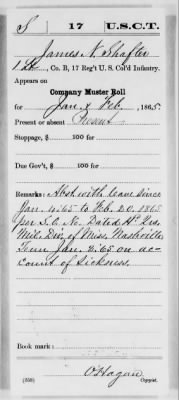 S 17 U.S.C.T.
James N. Shafter
Co. B, 17 Reg't U. S. Col'd Infantry.
Appears on
Company Muster Roll
for Jan & Feb, 1865.
Present or absent Present
Stoppage, $ 100 for
Due Gov't, $ 100 for
Remarks: Abst with leave since
Jan. 4. 65 to Feb. 20. 1865
per S. O. No. Dated Hd Qrs
Mil. Div. of Miss. Nashville
Tenn Jan. 3. 65 on ac-
count of Sickness.
Book mark:
(358) O'Hagan Copyist.